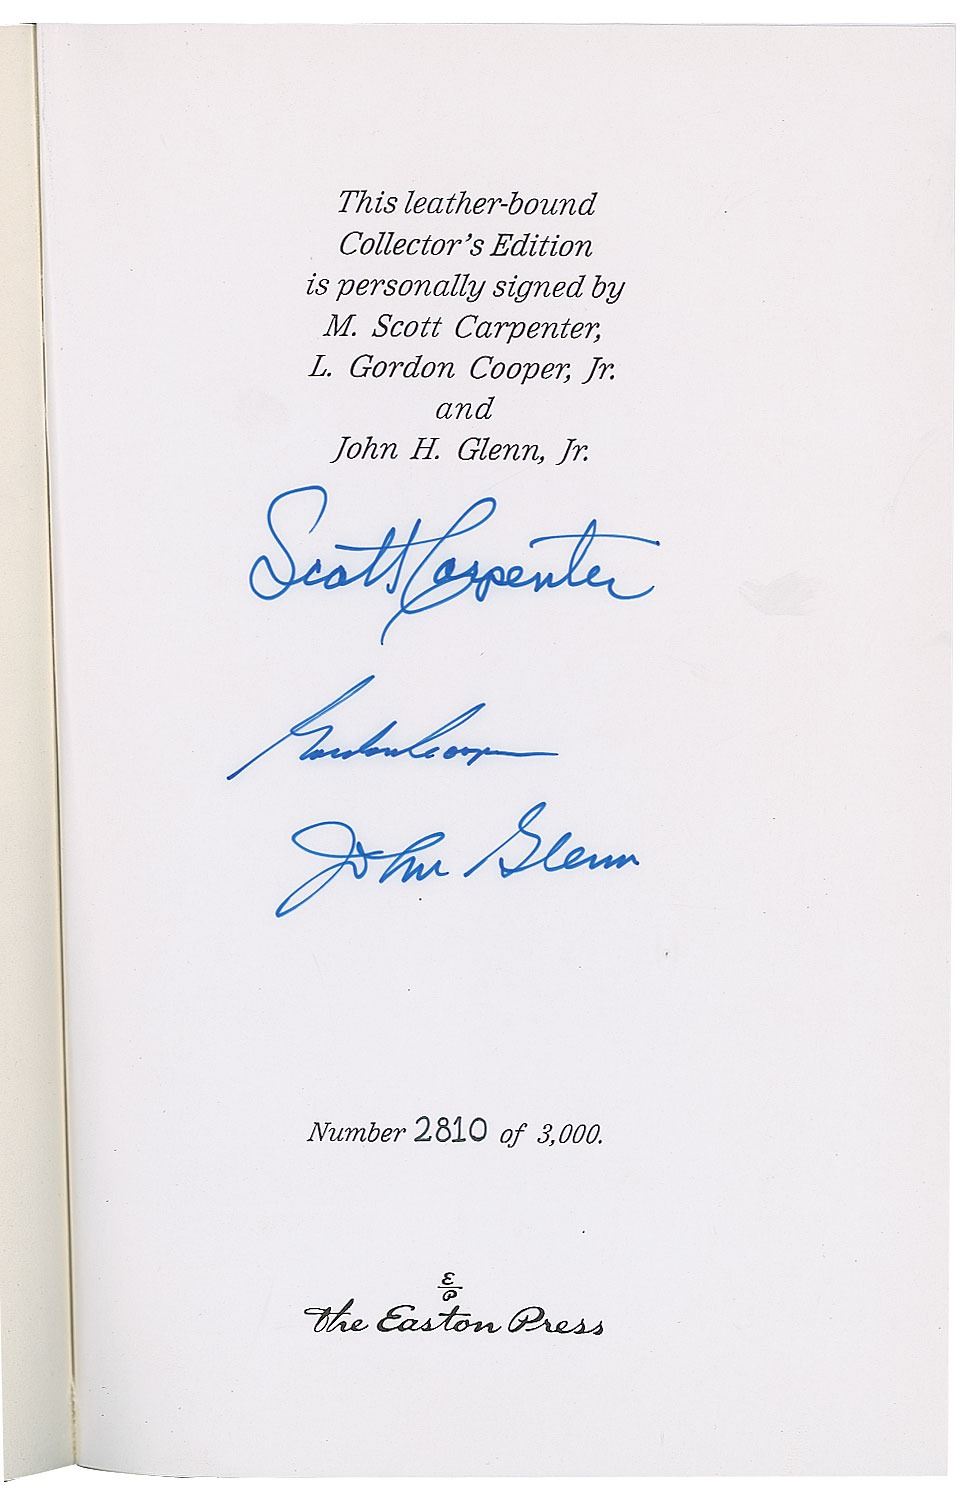 This leather-bound
Collector's Edition
is personally signed by
M. Scott Carpenter,
L. Gordon Cooper, Jr.
and
John H. Glenn, Jr.
Scott Carpenter
Gordon Cooper
John Glenn
Number 2810 of 3,000.
E
P
The Easton Press